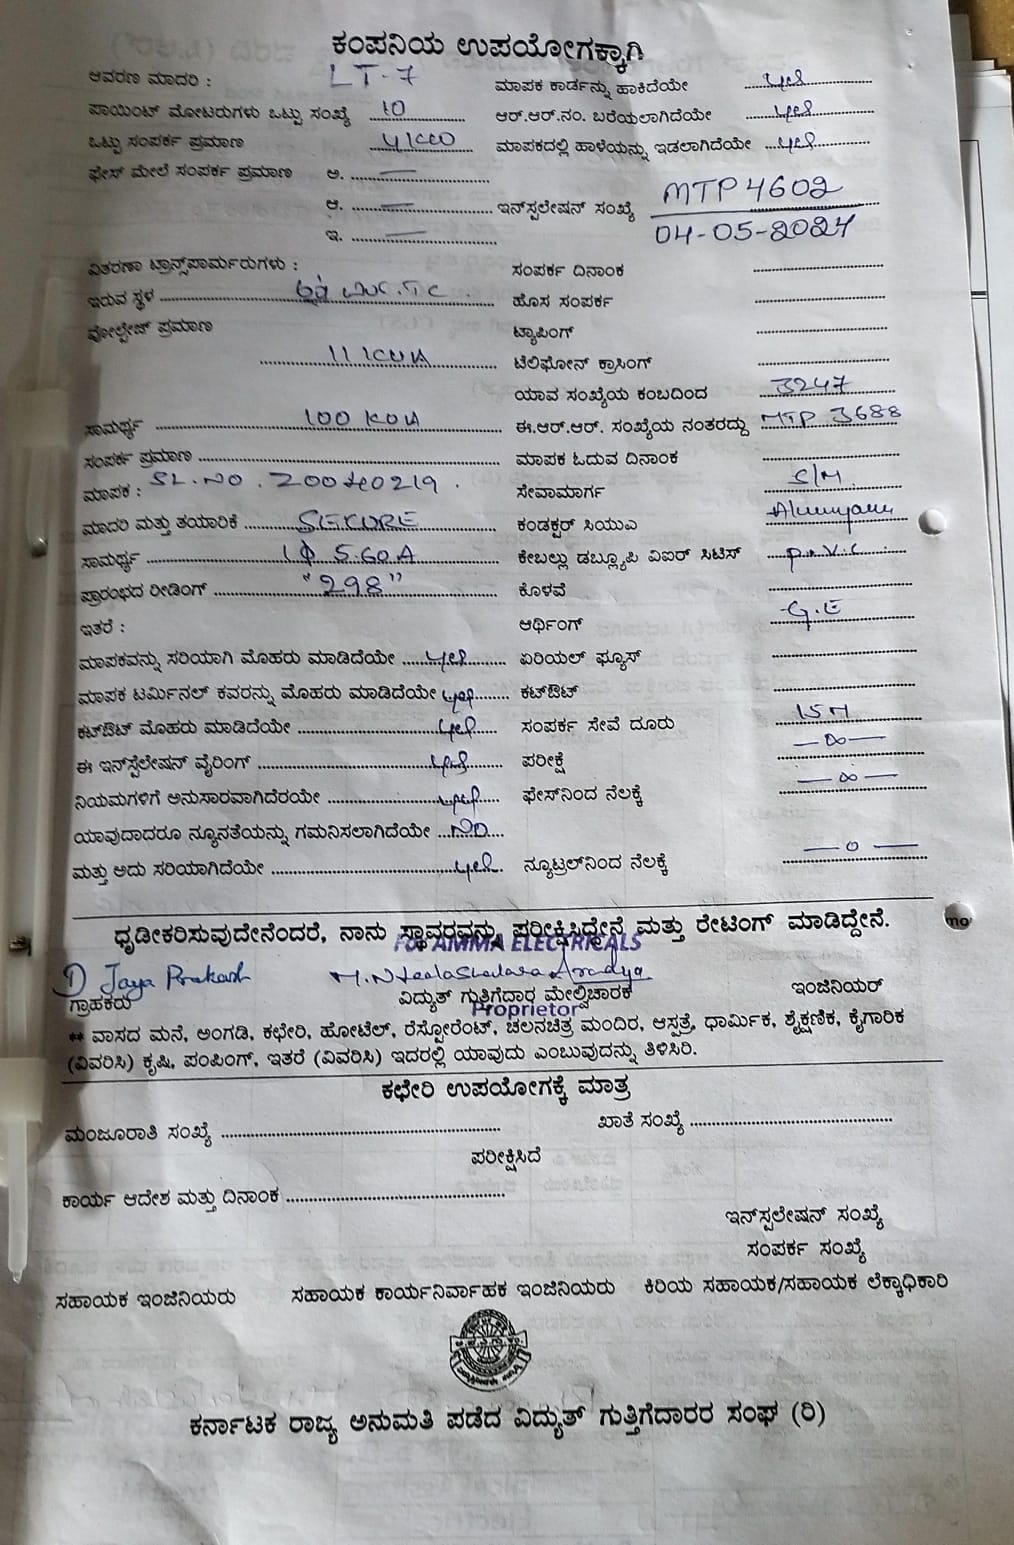 ಕಂಪನಿಯ ಉಪಯೋಗಕ್ಕಾಗಿ
ಆವರಣ ಮಾದರಿ : LT-7 ಮಾಪಕ ಕಾರ್ಡನ್ನು ಹಾಕಿದೆಯೇ yes
ಪಾಯಿಂಟ್ ಮೋಟರುಗಳು ಒಟ್ಟು ಸಂಖ್ಯೆ 10 ಆರ್.ಆರ್.ನಂ. ಬರೆಯಲಾಗಿದೆಯೇ yes
ಒಟ್ಟು ಸಂಪರ್ಕ ಪ್ರಮಾಣ ಮಾಪಕದಲ್ಲಿ ಹಾಳೆಯನ್ನು ಇಡಲಾಗಿದೆಯೇ yes
ಫೇಸ್ ಮೇಲೆ ಸಂಪರ್ಕ ಪ್ರಮಾಣ ಅ. —
ಆ. — ಇನ್‌ಸ್ಪಲೇಷನ್ ಸಂಖ್ಯೆ MTP 4602
04-05-2024
ಇ. —
ವಿತರಣಾ ಟ್ರಾನ್ಸ್‌ಪಾರ್ಮರುಗಳು : ಸಂಪರ್ಕ ದಿನಾಂಕ
ಇರುವ ಸ್ಥಳ ಹೊಸ ಸಂಪರ್ಕ
ವೋಲ್ಟೇಜ್ ಪ್ರಮಾಣ ಟ್ಯಾಪಿಂಗ್
11 KVA ಟೆಲಿಫೋನ್ ಕ್ರಾಸಿಂಗ್
ಯಾವ ಸಂಖ್ಯೆಯ ಕಂಬದಿಂದ 3247
ಸಾಮರ್ಥ್ಯ 100 KVA ಈ.ಆರ್.ಆರ್. ಸಂಖ್ಯೆಯ ನಂತರದ್ದು MTP 3688
ಸಂಪರ್ಕ ಪ್ರಮಾಣ ಮಾಪಕ ಓದುವ ದಿನಾಂಕ
ಮಾಪಕ : SL.NO. ಸೇವಾಮಾರ್ಗ S/M
ಮಾದರಿ ಮತ್ತು ತಯಾರಿಕೆ SEKURE ಕಂಡಕ್ಟರ್ ಸಿಯುವಿ
ಸಾಮರ್ಥ್ಯ 1Φ 5-60A ಕೇಬಲ್ಲು ಡಬ್ಲ್ಯೂಪಿ ವಿಐರ್ ಸಿಟಿಸ್ P.V.C.
ಪ್ರಾರಂಭದ ರೀಡಿಂಗ್ "298" ಕೊಳವೆ
ಇತರೆ : ಆರ್ಥಿಂಗ್ G.E
ಮಾಪಕವನ್ನು ಸರಿಯಾಗಿ ಮೊಹರು ಮಾಡಿದೆಯೇ yes ಏರಿಯಲ್ ಫ್ಯೂಸ್
ಮಾಪಕ ಟರ್ಮಿನಲ್ ಕವರನ್ನು ಮೊಹರು ಮಾಡಿದೆಯೇ yes ಕಟ್‌ಔಟ್
ಕಟ್‌ಔಟ್ ಮೊಹರು ಮಾಡಿದೆಯೇ yes ಸಂಪರ್ಕ ಸೇವೆ ದೂರು 15M
ಈ ಇನ್‌ಸ್ಪೆಲೇಷನ್ ವೈರಿಂಗ್ yes ಪರೀಕ್ಷೆ —∞—
ನಿಯಮಗಳಿಗೆ ಅನುಸಾರವಾಗಿದೆರಯೇ yes ಫೇಸ್‌ನಿಂದ ನೆಲಕ್ಕೆ —∞—
ಯಾವುದಾದರೂ ನ್ಯೂನತೆಯನ್ನು ಗಮನಿಸಲಾಗಿದೆಯೇ NO
ಮತ್ತು ಅದು ಸರಿಯಾಗಿದೆಯೇ yes ನ್ಯೂಟ್ರಲ್‌ನಿಂದ ನೆಲಕ್ಕೆ —0—
ಧೃಡೀಕರಿಸುವುದೇನೆಂದರೆ, ನಾನು ಸ್ಥಾವರವನ್ನು ಪರೀಕ್ಷಿಸಿದ್ದೇನೆ ಮತ್ತು ರೇಟಿಂಗ್ ಮಾಡಿದ್ದೇನೆ.
For AMMA ELECTRICALS
D Jaya Prakash
ಗ್ರಾಹಕರು ವಿದ್ಯುತ್ ಗುತ್ತಿಗೆದಾರ ಮೇಲ್ವಿಚಾರಕ ಇಂಜಿನಿಯರ್
Proprietor
** ವಾಸದ ಮನೆ, ಅಂಗಡಿ, ಕಛೇರಿ, ಹೋಟೆಲ್, ರೆಸ್ಟೋರೆಂಟ್, ಚಲನಚಿತ್ರ ಮಂದಿರ, ಆಸ್ಪತ್ರೆ, ಧಾರ್ಮಿಕ, ಶೈಕ್ಷಣಿಕ, ಕೈಗಾರಿಕ
(ವಿವರಿಸಿ) ಕೃಷಿ, ಪಂಪಿಂಗ್, ಇತರೆ (ವಿವರಿಸಿ) ಇದರಲ್ಲಿ ಯಾವುದು ಎಂಬುವುದನ್ನು ತಿಳಿಸಿರಿ.
ಕಛೇರಿ ಉಪಯೋಗಕ್ಕೆ ಮಾತ್ರ
ಮಂಜೂರಾತಿ ಸಂಖ್ಯೆ ಖಾತೆ ಸಂಖ್ಯೆ
ಪರೀಕ್ಷಿಸಿದೆ
ಕಾರ್ಯ ಆದೇಶ ಮತ್ತು ದಿನಾಂಕ
ಇನ್‌ಸ್ಪಲೇಷನ್ ಸಂಖ್ಯೆ
ಸಂಪರ್ಕ ಸಂಖ್ಯೆ
ಸಹಾಯಕ ಇಂಜಿನಿಯರು ಸಹಾಯಕ ಕಾರ್ಯನಿರ್ವಾಹಕ ಇಂಜಿನಿಯರು ಕಿರಿಯ ಸಹಾಯಕ/ಸಹಾಯಕ ಲೆಕ್ಕಾಧಿಕಾರಿ
ಕರ್ನಾಟಕ ರಾಜ್ಯ ಅನುಮತಿ ಪಡೆದ ವಿದ್ಯುತ್ ಗುತ್ತಿಗೆದಾರರ ಸಂಘ (ರಿ)